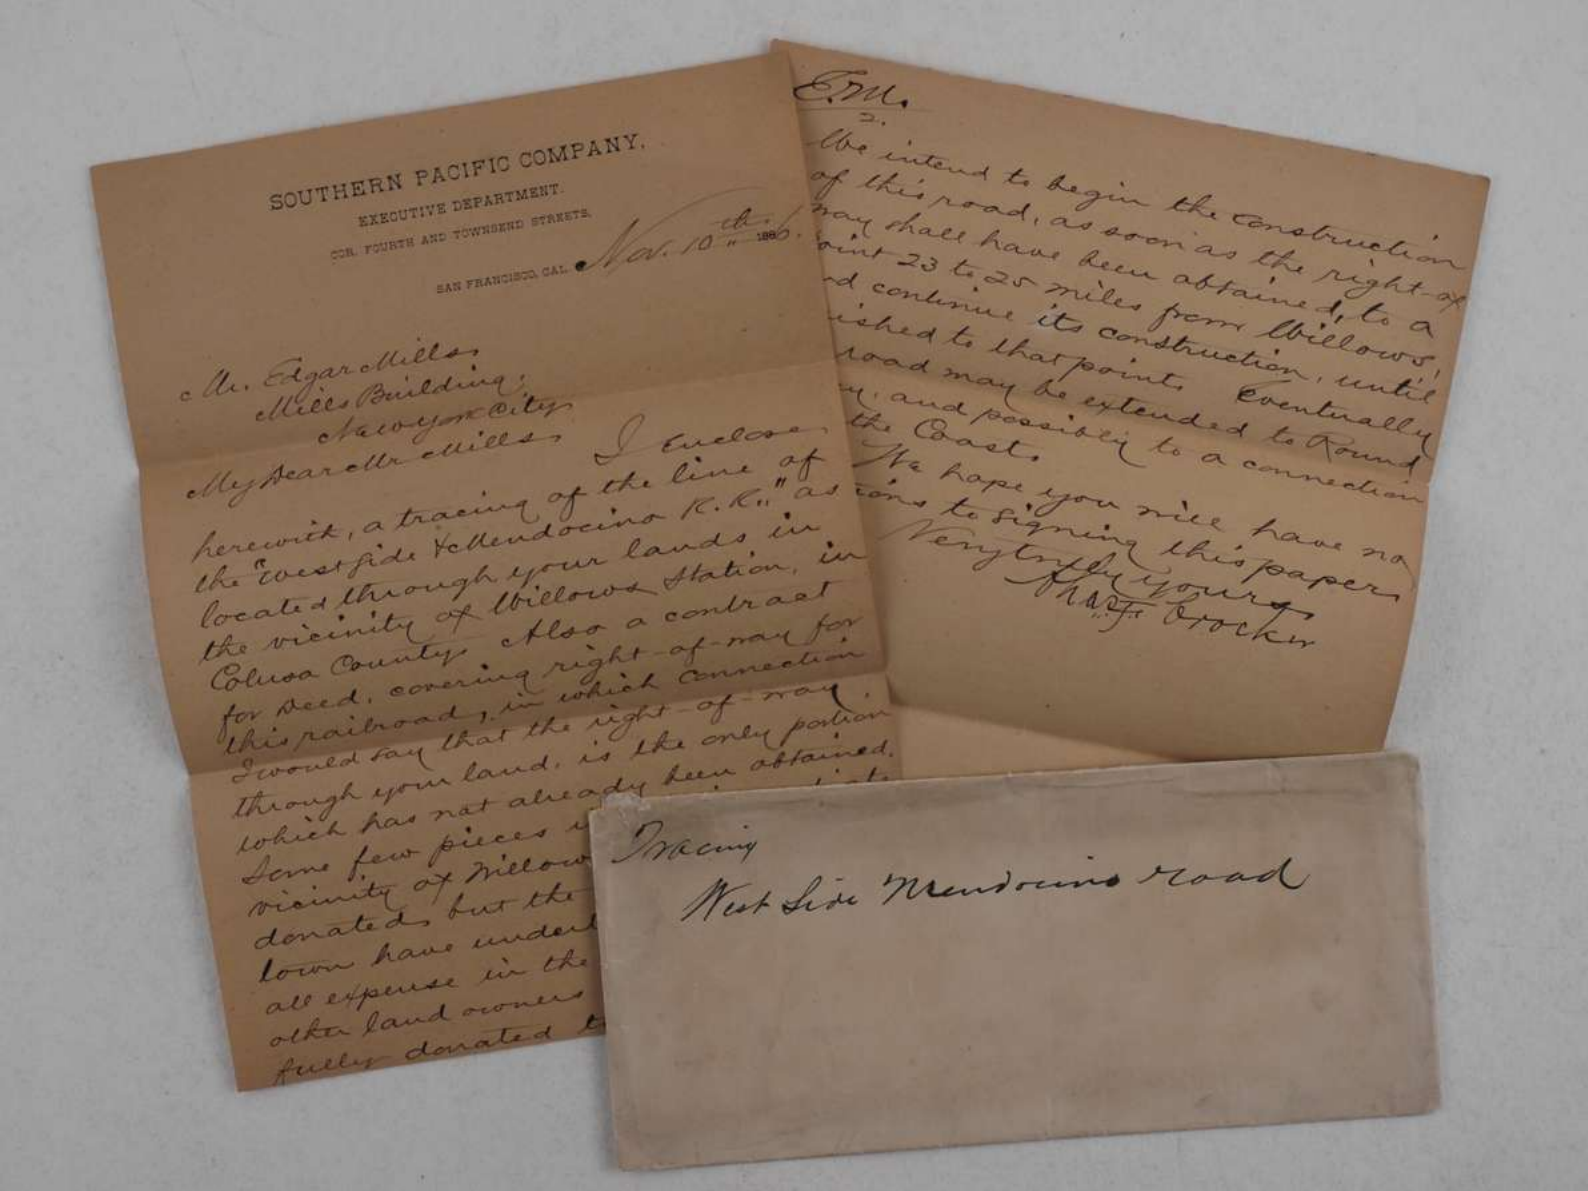 SOUTHERN PACIFIC COMPANY,
EXECUTIVE DEPARTMENT.
COR. FOURTH AND TOWNSEND STREETS,
SAN FRANCISCO, CAL. Nov. 10th. 1886.
Mr. Edgar Mills
Mills Building,
New York City
My Dear Mr Mills
I enclose
herewith, a tracing of the line of
the "West Side & Mendocino R. R.," as
located through your lands in
the vicinity of Willows Station, in
Colusa County. Also a contract
for Deed, covering right-of-way for
this railroad, in which connection
I would say that the right-of-way
through your land, is the only portion
which has not already been obtained.
Some few pieces
vicinity of Willow
donated, but the
town have under
all expense in the
other land owners
fully donated t
E.M.
2.
We intend to begin the construction
of this road, as soon as the right-of
way shall have been obtained, to a
oint 23 to 25 miles from Willows,
nd continue its construction, until
ished to that point. Eventually
road may be extended to Round
ey, and possibly to a connection
the Coast.
We hope you will have no
tions to signing this paper.
Very truly yours,
Chas. F. Crocker
Tracing
West Side Mendocino road